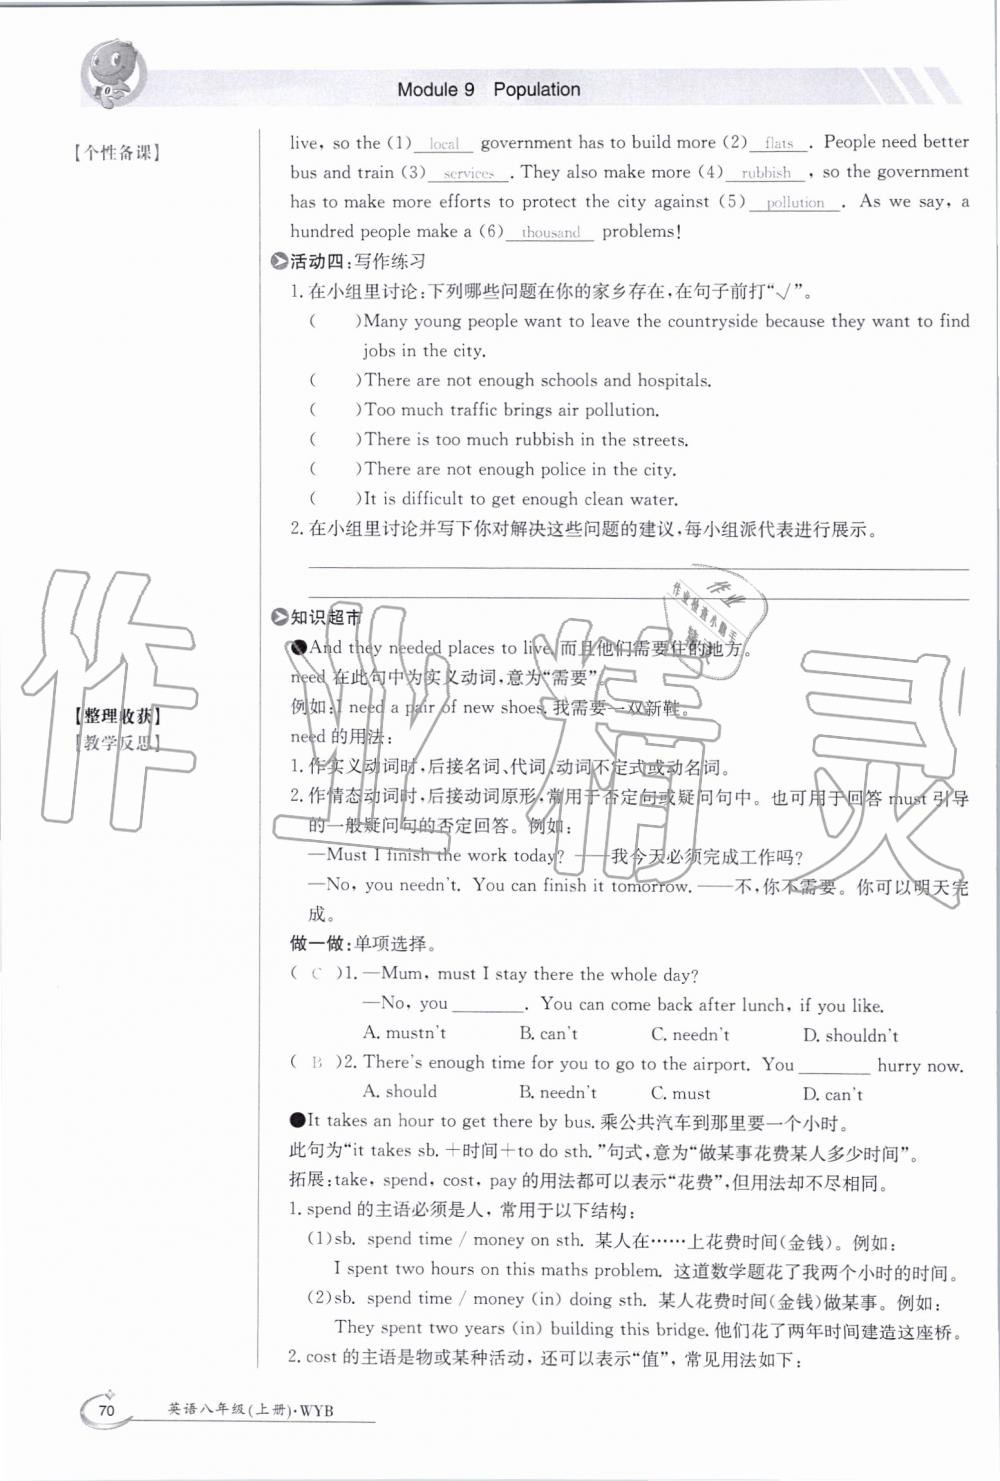 Module 9 Population
【个性备课】
live, so the (1) local government has to build more (2) flats . People need better
bus and train (3) services . They also make more (4) rubbish , so the government
has to make more efforts to protect the city against (5) pollution . As we say, a
hundred people make a (6) thousand problems!
活动四:写作练习
1. 在小组里讨论:下列哪些问题在你的家乡存在,在句子前打“√”。
( )Many young people want to leave the countryside because they want to find
jobs in the city.
( )There are not enough schools and hospitals.
( )Too much traffic brings air pollution.
( )There is too much rubbish in the streets.
( )There are not enough police in the city.
( )It is difficult to get enough clean water.
2. 在小组里讨论并写下你对解决这些问题的建议,每小组派代表进行展示。
知识超市
●And they needed places to live. 而且他们需要住的地方。
need 在此句中为实义动词,意为“需要”。
例如:I need a pair of new shoes. 我需要一双新鞋。
need 的用法:
1. 作实义动词时,后接名词、代词、动词不定式或动名词。
2. 作情态动词时,后接动词原形,常用于否定句或疑问句中。也可用于回答 must 引导
的一般疑问句的否定回答。例如:
—Must I finish the work today? ——我今天必须完成工作吗?
—No, you needn't. You can finish it tomorrow. ——不,你不需要。你可以明天完
成。
做一做:单项选择。
( C )1. —Mum, must I stay there the whole day?
—No, you ________. You can come back after lunch, if you like.
A. mustn't B. can't C. needn't D. shouldn't
( B )2. There's enough time for you to go to the airport. You ________ hurry now.
A. should B. needn't C. must D. can't
●It takes an hour to get there by bus. 乘公共汽车到那里要一个小时。
此句为“it takes sb. +时间+to do sth. ”句式,意为“做某事花费某人多少时间”。
拓展:take, spend, cost, pay 的用法都可以表示“花费”,但用法却不尽相同。
1. spend 的主语必须是人,常用于以下结构:
(1)sb. spend time / money on sth. 某人在……上花费时间(金钱)。例如:
I spent two hours on this maths problem. 这道数学题花了我两个小时的时间。
(2)sb. spend time / money (in) doing sth. 某人花费时间(金钱)做某事。例如:
They spent two years (in) building this bridge. 他们花了两年时间建造这座桥。
2. cost 的主语是物或某种活动,还可以表示“值”,常见用法如下:
【整理收获】
【教学反思】
70 英语八年级(上册)·WYB
作业精灵
作业
作业检查小助手
精灵